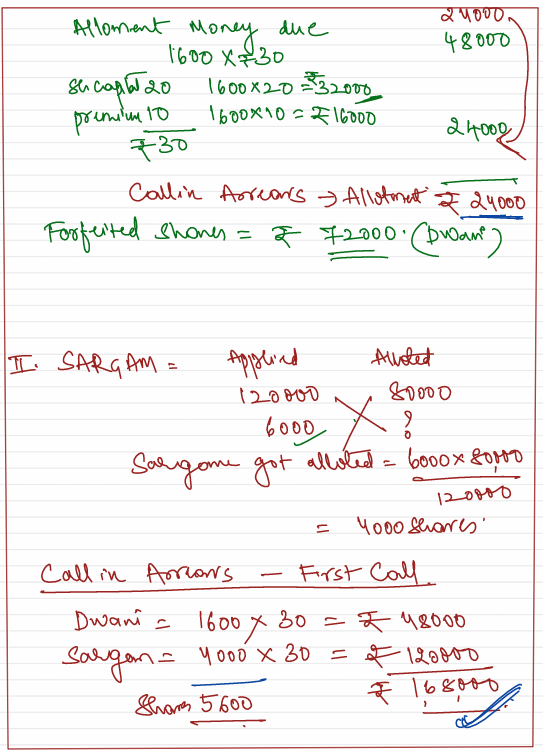 Alloment Money due
24000
48000
1600 × ₹30
sh capital 20 1600×20 = ₹32000
premium 10 1600×10 = ₹16000
24000
₹30
Call in Arrears → Allotment ₹ 24000
Forfeited Shares = ₹ 72000. (Dwani)
II. SARGAM = Applied Alloted
120000 80000
6000 ?
Sargam got alloted = 6000 × 80,000
120000
= 4000 Shares.
Call in Arrears — First Call
Dwani = 1600 × 30 = ₹ 48000
Sargam = 4000 × 30 = ₹ 120000
Shares 5600 ₹ 168000